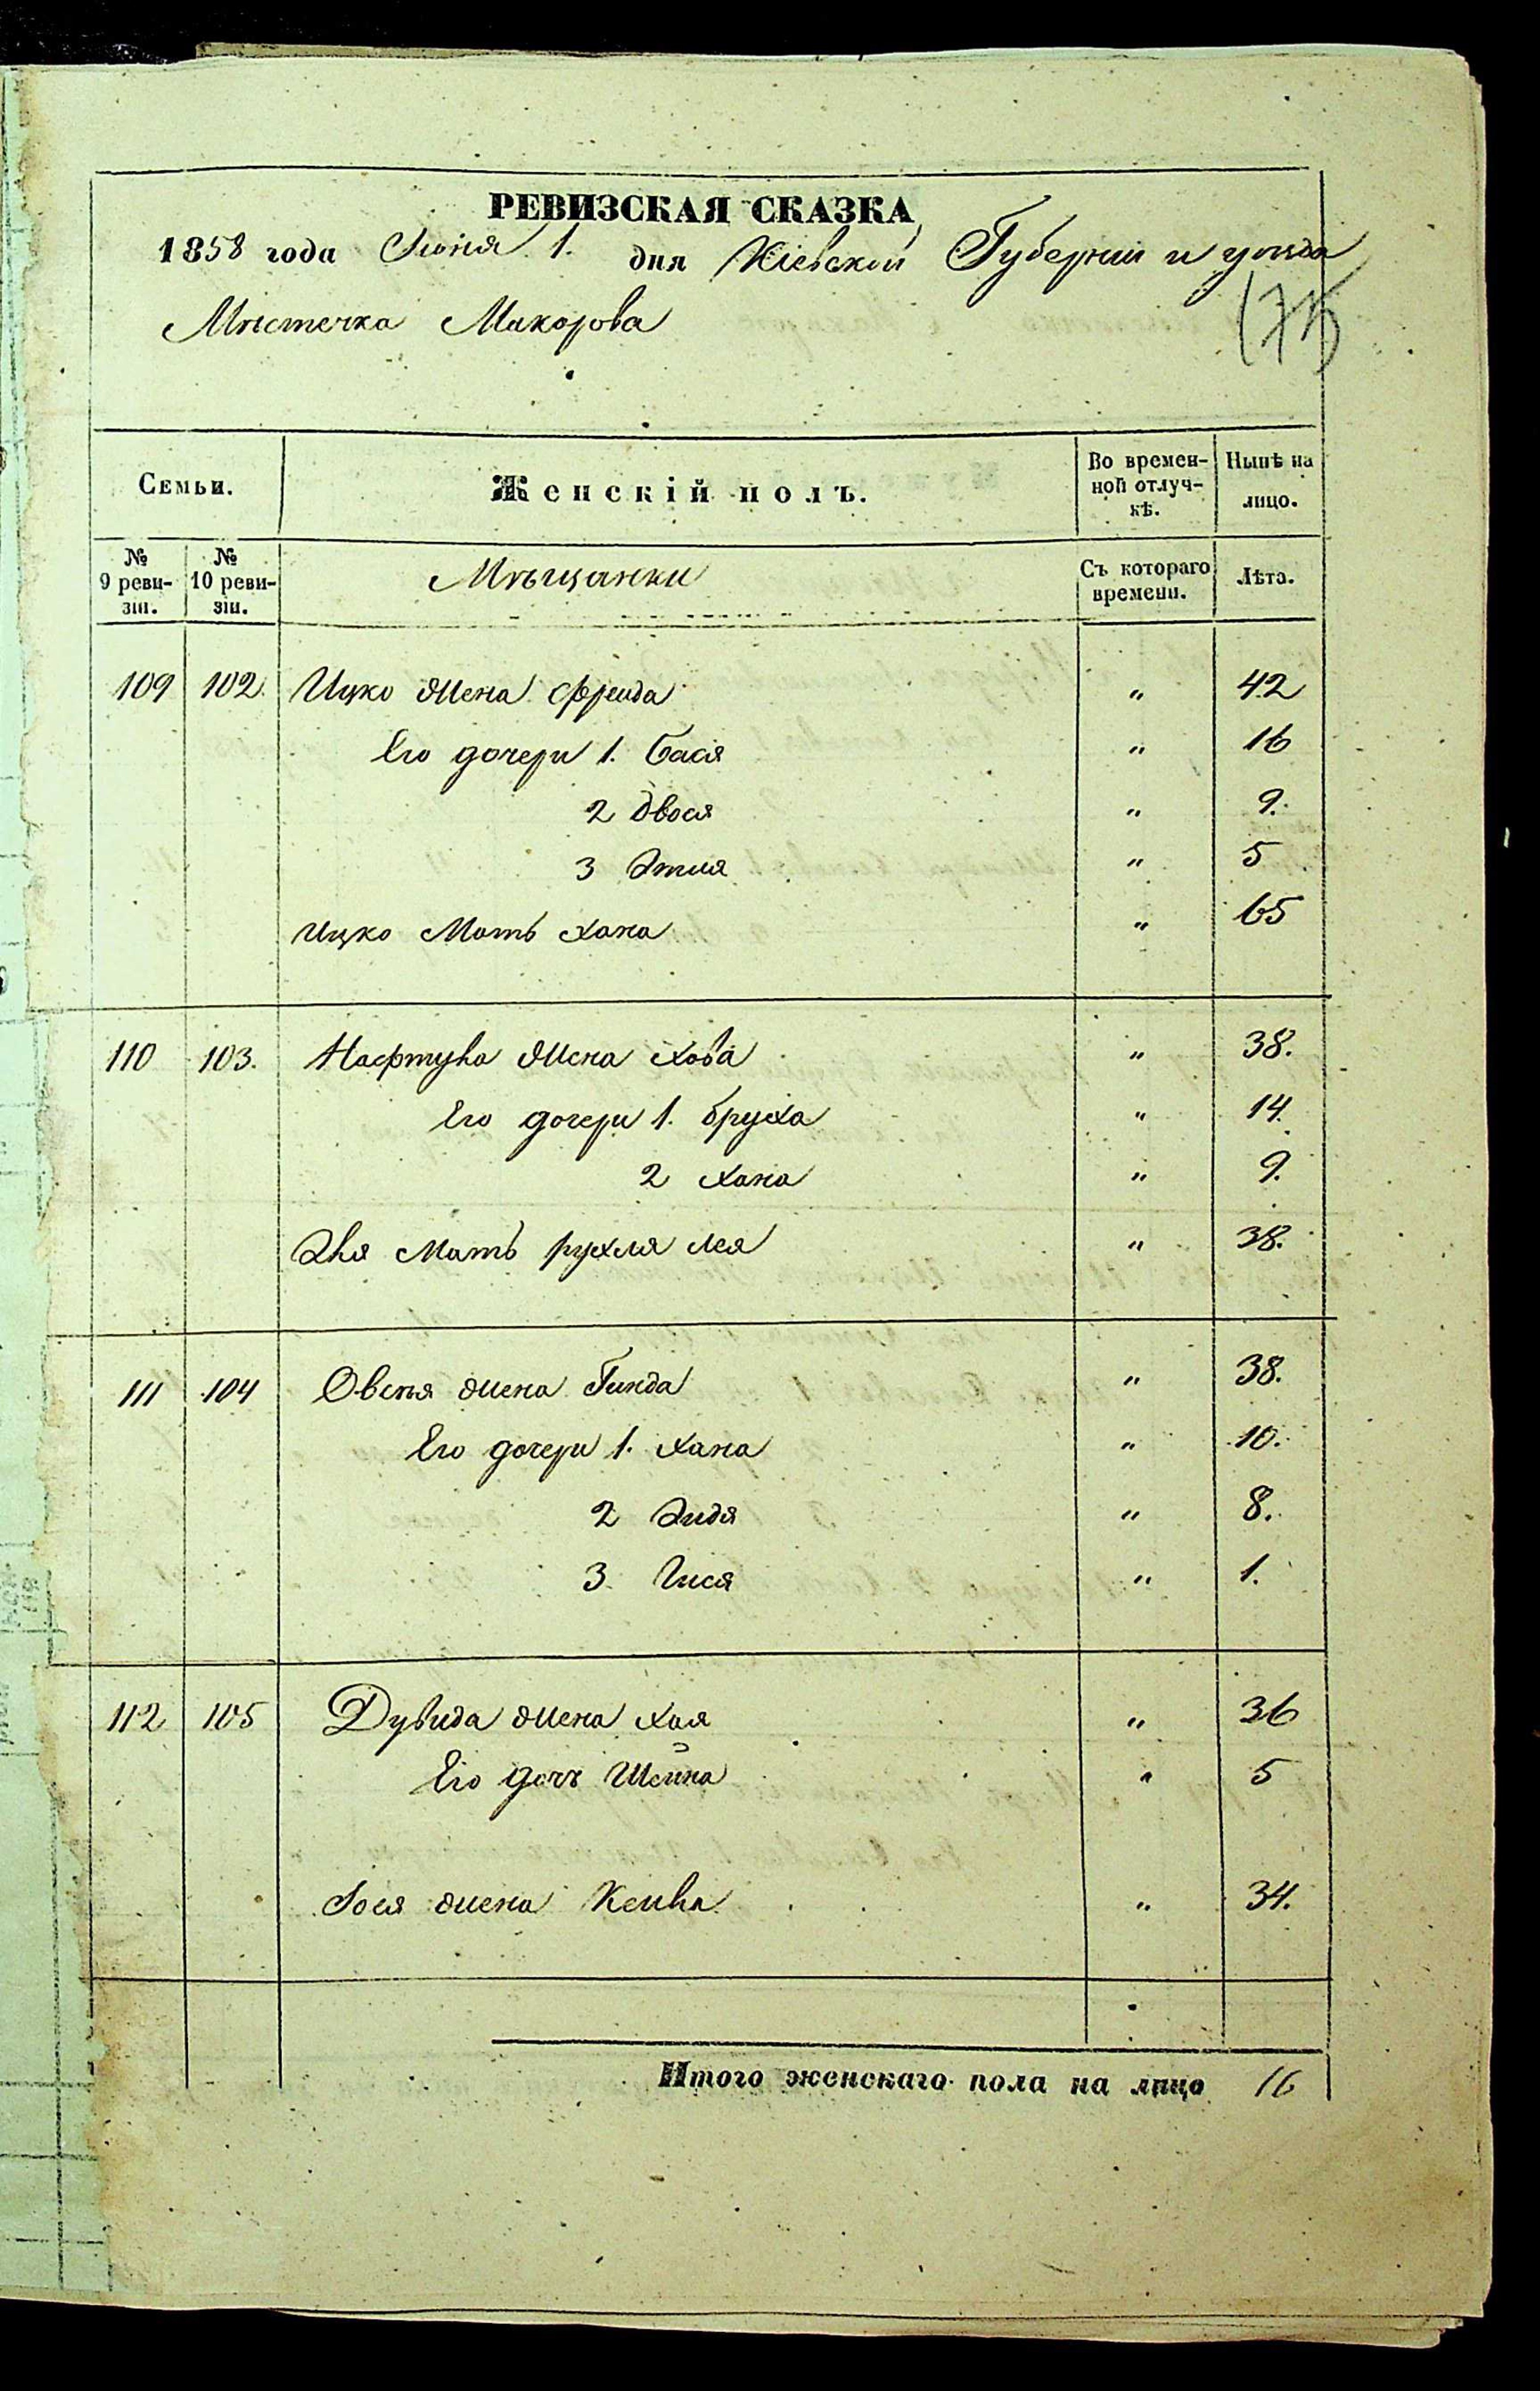 РЕВИЗСКАЯ СКАЗКА
1858 года Іюня 1. дня Кіевской Губерніи и уезда
Мѣстечка Макорова
175
Семьи. Женскій полъ. Во времен-ной отлуч-кѣ. Нынѣ на лицо.
№ 9 реви-зіи. № 10 реви-зіи. Мѣщанки Съ котораго времени. Лѣта.
109 102. Ицко жена Фрейда " 42
Его дочери 1. Бася " 16
2 Двося " 9.
3 Этля " 5
Ицко Мать Хана " 65
110 103. Нафтула жена Хова " 38.
Его дочери 1. Бруха " 14.
2 Хана " 9.
Мать рухля лея " 38.
111 104 Овсѣя жена Гинда " 38.
Его дочери 1. Хана " 10.
2 Эидя " 8.
3. Гися " 1.
112 105 Дувида жена Хая " 36
Его дочь Шейна " 5
Іося жена " 34.
Итого женскаго пола на лицо 16